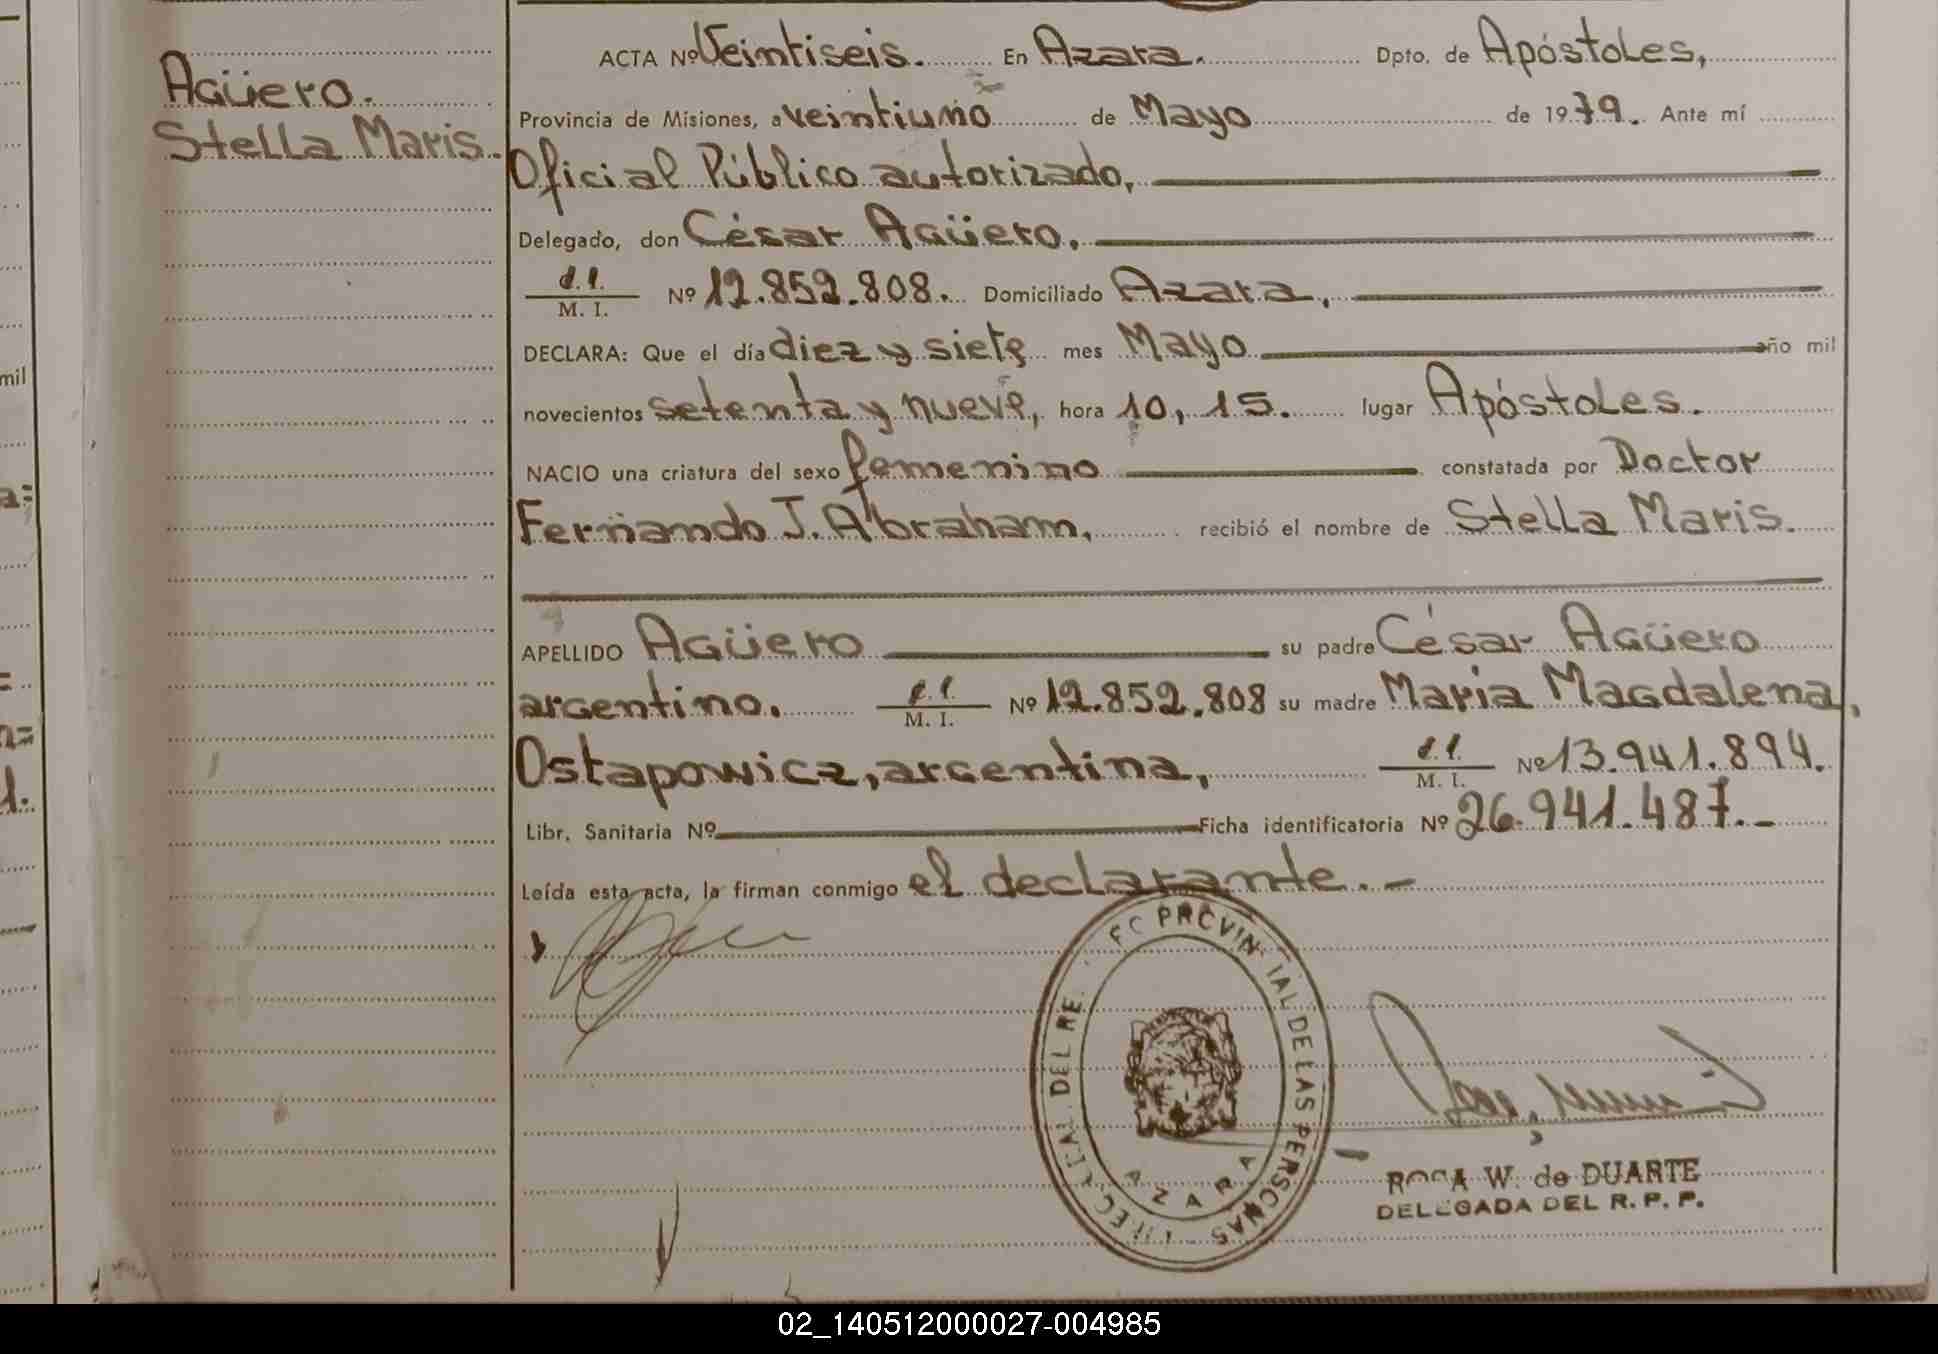 Agüero.
Stella Maris.
ACTA Nº Veintiseis. En Azara. Dpto. de Apóstoles,
Provincia de Misiones, a veintiuno de Mayo de 1979. Ante mí
Oficial Público autorizado,
Delegado, don César Agüero.
M. I. Nº 12.852.808. Domiciliado Azara,
DECLARA: Que el día diez y siete mes Mayo año mil
novecientos setenta y nueve, hora 10,15. lugar Apóstoles.
NACIO una criatura del sexo femenino constatada por Doctor
Fernando J. Abraham, recibió el nombre de Stella Maris.
APELLIDO Agüero su padre César Agüero
argentino. M. I. Nº 12.852.808 su madre Maria Magdalena,
Ostapowicz, argentina, M. I. Nº 13.941.894.
Libr. Sanitaria Nº Ficha identificatoria Nº 26.941.487.-
Leída esta acta, la firman conmigo el declarante.-
PROVINCIAL DE LAS PERSONAS
DEL RE
AZARA
ROSA W. de DUARTE
DELEGADA DEL R. P. P.
mil
02_140512000027-004985